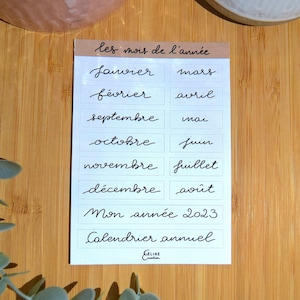 les mois de l'année
janvier mars
février avril
septembre mai
octobre juin
novembre juillet
décembre août
Mon année 2023
Calendrier annuel
CÉLINE
Creation